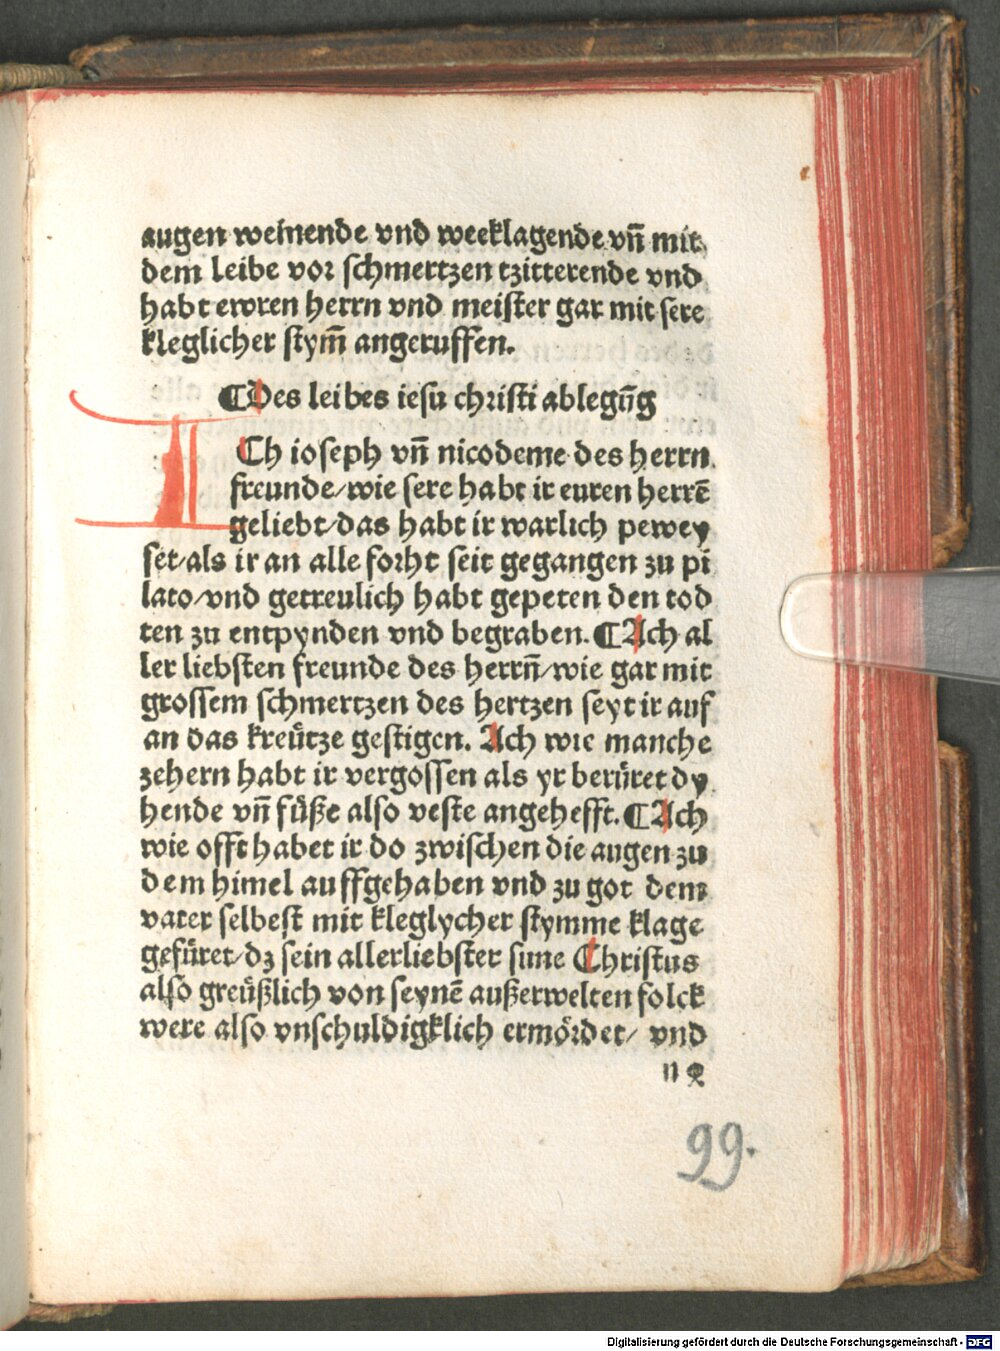 augen weinende vnd weeklagende vn̄ mit
dem leibe vor schmertzen tzitterende vnd
habt ewren herrn vnd meister gar mit sere
kleglicher stym̄ angeruffen.
¶Des leibes iesu christi ablegūg
ICh ioseph vn̄ nicodeme des herrn
freunde/wie sere habt ir euren herrē
geliebt/das habt ir warlich pewey
set/als ir an alle forht seit gegangen zu pi
lato/vnd getreulich habt gepeten den tod
ten zu entpynden vnd begraben. ¶Ach al
ler liebsten freunde des herrn̄/wie gar mit
grossem schmertzen des hertzen seyt ir auf
an das kreůtze gestigen. Ach wie manche
zehern habt ir vergossen als yr berůret dy
hende vn̄ fůße also veste angehefft. ¶Ach
wie offt habet ir do zwischen die augen zu
dem himel auffgehaben vnd zu got dem
vater selbest mit kleglycher stymme klage
gefůret/dz sein allerliebster sune Christus
also greůßlich von seynē außerwelten folck
were also vnschuldigklich ermördet/ vnd
n ꝛ
99.
Digitalisierung gefördert durch die Deutsche Forschungsgemeinschaft - DFG